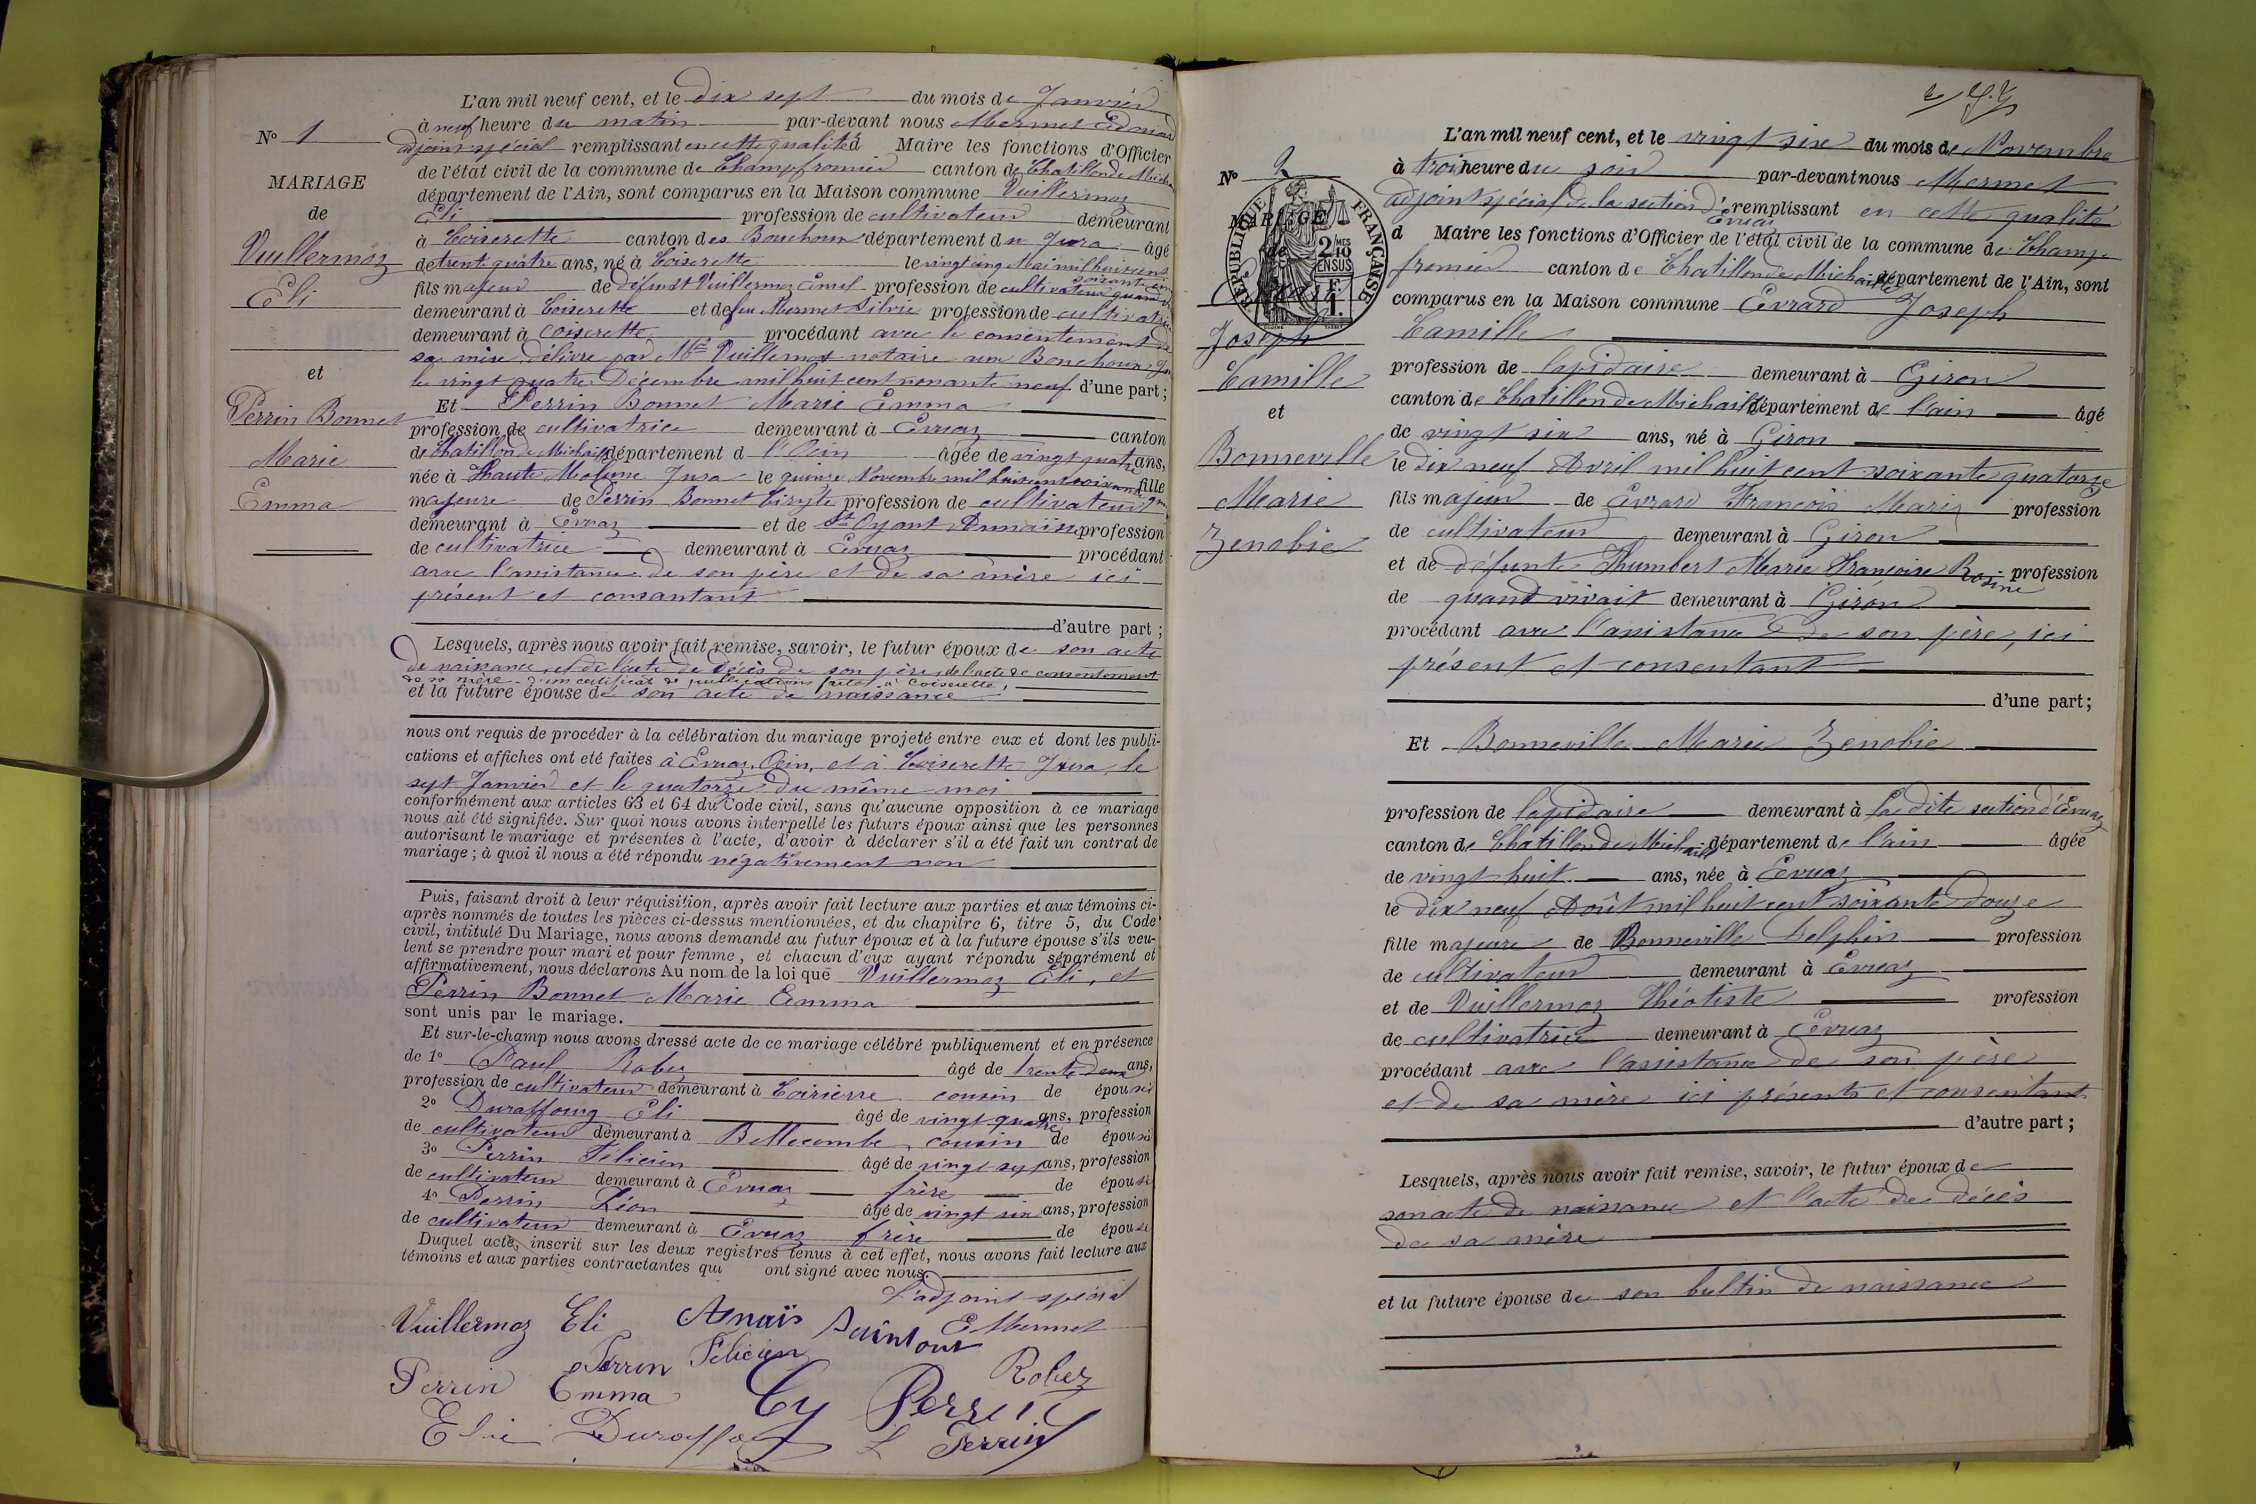 N° 1
MARIAGE
de
Vuillermoz
Eli
et
Perrin Bonnet
Marie
Emma
L'an mil neuf cent, et le dix sept du mois de Janvier
à neuf heure du matin par-devant nous Mermet Edmond
adjoint spécial remplissant en cette qualité d Maire les fonctions d'Officier
de l'état civil de la commune de Champfromier canton de Chatillon de Michaille
département de l'Ain, sont comparus en la Maison commune Vuillermoz
Eli profession de cultivateur demeurant
à Coiserette canton des Bouchoux département du Jura âgé
de trent quatre ans, né à Coiserette le vingt cinq Mai mil huit cent
soixante cinq
fils majeur de défunt Vuillermoz Aimé profession de cultivateur quand vi
demeurant à Coiserette et de feu Mermet Silvie profession de cultivatrice
demeurant à Coiserette procédant avec le consentement de
sa mère délivré par Me Vuillermoz notaire aux Bouchoux, Jura
le vingt quatre Décembre mil huit cent nonante neuf d'une part ;
Et Perrin Bonnet Marie Emma
profession de cultivatrice demeurant à Evuaz canton
de Chatillon de Michaille département d l'Ain âgée de vingt quatre ans,
née à Haute Molune Jura le quinze Novembre mil huit cent soixante quinze fille
majeure de Perrin Bonnet Cirylle profession de cultivateur
demeurant à Evuaz et de St Oyant Annaïse profession
de cultivatrice demeurant à Evuaz procédant
avec l'assistance de son père et de sa mère ici
présent et consantant
d'autre part ;
Lesquels, après nous avoir fait remise, savoir, le futur époux de son acte
de naissance et de l'acte de décès de son père, de l'acte de consentement
de sa mère, d'un certificat de publications faites à Coiserette,
et la future épouse de son acte de naissance
nous ont requis de procéder à la célébration du mariage projeté entre eux et dont les publi-
cations et affiches ont été faites à Evuaz, Ain, et à Coiserette Jura, le
sept Janvier et le quatorze du même moi
conformément aux articles 63 et 64 du Code civil, sans qu'aucune opposition à ce mariage
nous ait été signifiée. Sur quoi nous avons interpellé les futurs époux ainsi que les personnes
autorisant le mariage et présentes à l'acte, d'avoir à déclarer s'il a été fait un contrat de
mariage ; à quoi il nous a été répondu négativement non
Puis, faisant droit à leur réquisition, après avoir fait lecture aux parties et aux témoins ci-
après nommés de toutes les pièces ci-dessus mentionnées, et du chapitre 6, titre 5, du Code
civil, intitulé Du Mariage, nous avons demandé au futur époux et à la future épouse s'ils veu-
lent se prendre pour mari et pour femme, et chacun d'eux ayant répondu séparément et
affirmativement, nous déclarons Au nom de la loi que Vuillermoz Eli, et
Perrin Bonnet Marie Emma
sont unis par le mariage.
Et sur-le-champ nous avons dressé acte de ce mariage célébré publiquement et en présence
de 1° Paul Robez âgé de trente deux ans,
profession de cultivateur demeurant à Coirierre cousin de épousé
2° Duraffourg Eli âgé de vingt quatre ans, profession
de cultivateur demeurant à Bellecombe cousin de épousé
3° Perrin Félicien âgé de vingt sept ans, profession
de cultivateur demeurant à Evuaz frère de épouse
4° Perrin Léon âgé de vingt six ans, profession
de cultivateur demeurant à Evuaz frère de épouse
Duquel acte, inscrit sur les deux registres tenus à cet effet, nous avons fait lecture aux
témoins et aux parties contractantes qui ont signé avec nous.
L'adjoint spécial
Vuillermoz Eli Anaïs Saintoant E Mermet
Perrin Félicien Robez
Perrin Emma Cy Perrin
Elie Duraffour L Perrin
N° 2
MARIAGE
de
RÉPUBLIQUE FRANÇAISE
2 MES
10
EN SUS
1 F.
Evrard
Joseph
Camille
et
Bonneville
Marie
Zenobie
L'an mil neuf cent, et le vingt six du mois de Novembre
à trois heure du soir par-devant nous Mermet
adjoint spécial de la section d'Evuaz remplissant en cette qualité
d Maire les fonctions d'Officier de l'état civil de la commune de Champ
fromier canton de Chatillon de Michaille département de l'Ain, sont
comparus en la Maison commune Evrard Joseph
Camille
profession de lapidaire demeurant à Giron
canton de Chatillon de Michaille département de l'ain âgé
de vingt six ans, né à Giron
le dix neuf Avril mil huit cent soixante quatorze
fils majeur de Evrard François Marie profession
de cultivateur demeurant à Giron
et de défunte Humbert Marie Françoise Rosine profession
de quand vivait demeurant à Giron
procédant avec l'assistance de son père, ici
présent et consentant
d'une part ;
Et Bonneville Marie Zenobie
profession de lapidaire demeurant à la dite section d'Evuaz
canton de Chatillon de Michaille département de l'ain âgée
de vingt huit ans, née à Evuaz
le dix neuf Août mil huit cent soixante douze
fille majeure de Bonneville Delphin profession
de cultivateur demeurant à Evuaz
et de Vuillermoz Théotiste profession
de cultivatrice demeurant à Evuaz
procédant avec l'assistance de son père
et de sa mère ici présents et consentant
d'autre part ;
Lesquels, après nous avoir fait remise, savoir, le futur époux de
son acte de naissance et l'acte de décès
de sa mère
et la future épouse de son bultin de naissance